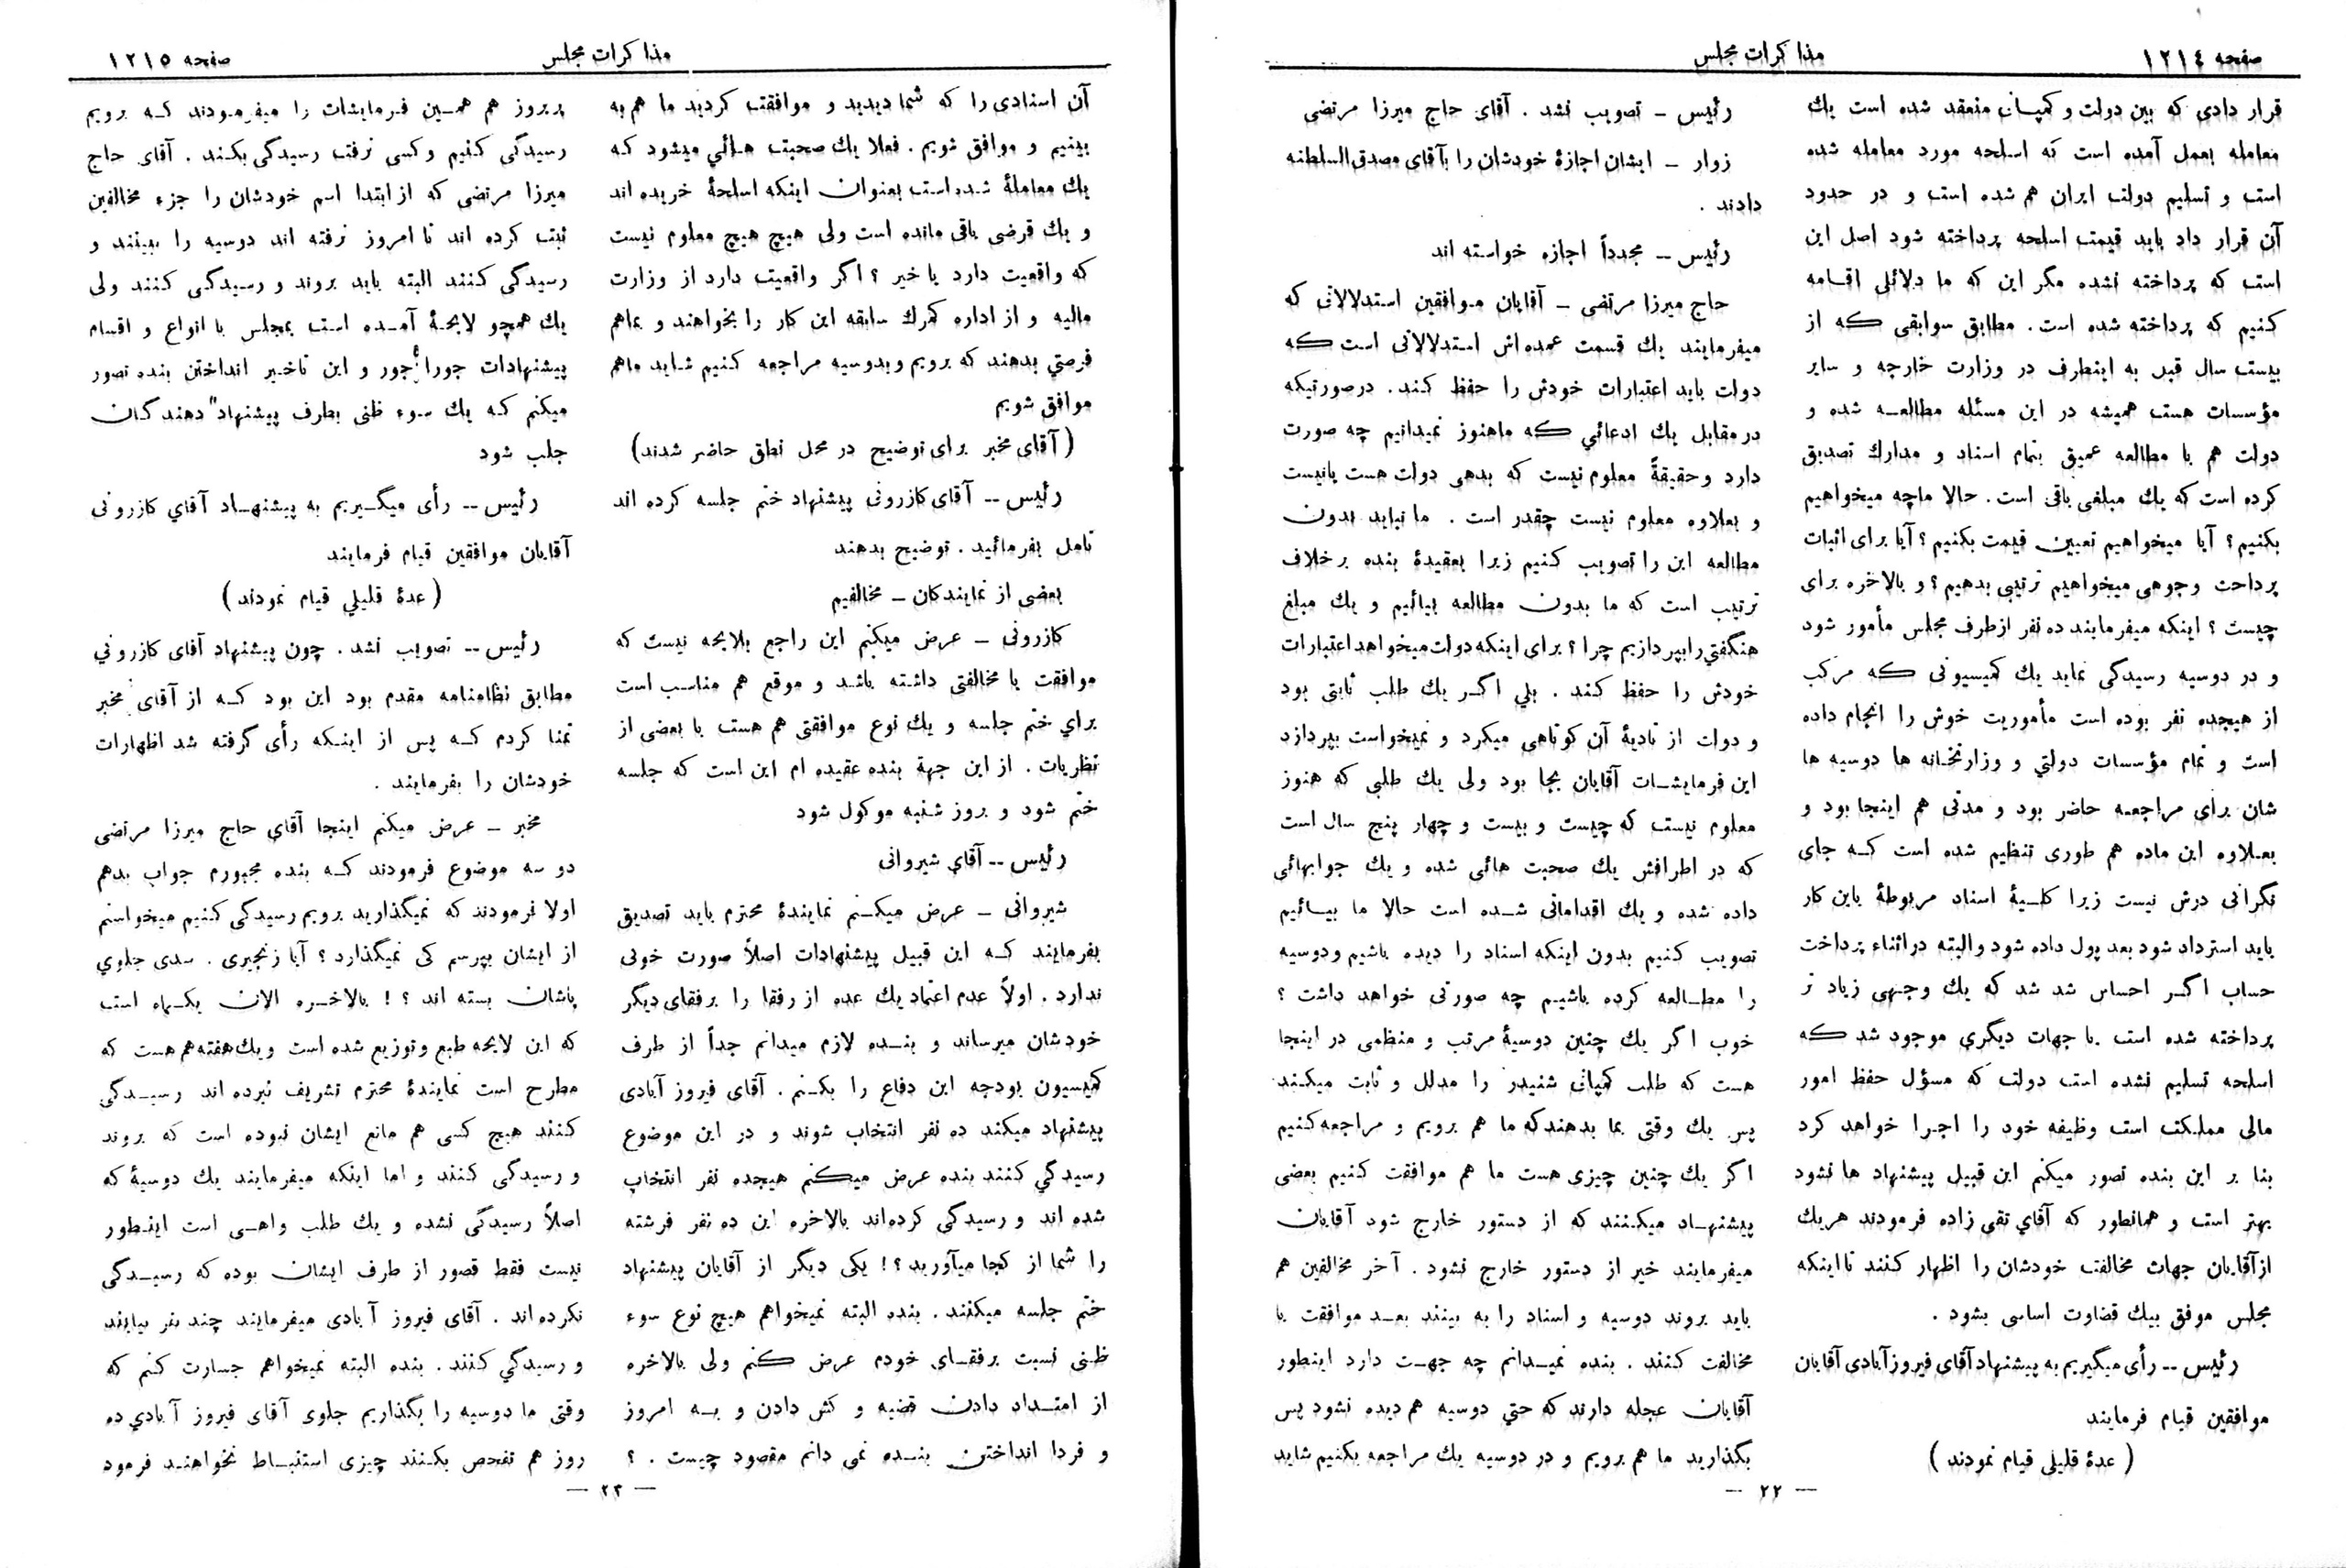 صفحه ١٢١٤
مذاکرات مجلس
قرار دادی که بین دولت و کمپانی منعقد شده است یك
معامله بعمل آمده است که اسلحه مورد معامله شده
است و تسلیم دولت ایران هم شده است و در حدود
آن قرار داد باید قیمت اسلحه پرداخته شود اصل این
است که پرداخته نشده مگر این که ما دلائلی اقامه
کنیم که پرداخته شده است. مطابق سوابقی که از
بیست سال قبل به اینطرف در وزارت خارجه و سایر
مؤسسات هست همیشه در این مسئله مطالعه شده و
دولت هم با مطالعه عمیق بتمام اسناد و مدارك تصدیق
کرده است که یك مبلغی باقی است. حالا ماچه میخواهیم
بکنیم؟ آیا میخواهیم تعیین قیمت بکنیم؟ آیا برای اثبات
پرداخت وجوهی میخواهیم ترتیبی بدهیم؟ و بالاخره برای
چیست؟ اینکه میفرمایند ده نفر ازطرف مجلس مأمور شود
و در دوسیه رسیدگی نماید یك کمیسیونی که مرکب
از هیجده نفر بوده است مأموریت خوش را انجام داده
است و تمام مؤسسات دولتي و وزارتخانه ها دوسیه ها
شان برای مراجعه حاضر بود و مدتی هم اینجا بود و
بعلاوه این ماده هم طوری تنظیم شده است که جای
نگرانی درش نیست زیرا کلیهٔ اسناد مربوطهٔ باین کار
باید استرداد شود بعد پول داده شود والبته دراثناء پرداخت
حساب اگر احساس شد شد که یك وجهی زیاد تر
پرداخته شده است یا جهات دیگری موجود شد که
اسلحه تسلیم نشده است دولت که مسؤل حفظ امور
مالی مملکت است وظیفه خود را اجرا خواهد کرد
بنا بر این بنده تصور میکنم این قبیل پیشنهاد ها نشود
بهتر است و همانطور که آقاي تقی زاده فرمودند هریك
ازآقایان جهات مخالفت خودشان را اظهار کنند تا اینکه
مجلس موفق بیك قضاوت اساسی بشود.
رئیس -- رأی میگیریم به پیشنهاد آقای فیروزآبادی آقایان
موافقین قیام فرمایند
( عدهٔ قلیلی قیام نمودند )
رئیس – تصویب نشد. آقای حاج میرزا مرتضی
زوار – ایشان اجازهٔ خودشان را بآقای مصدق السلطنه
دادند.
رئیس -- مجدداً اجازه خواسته اند
حاج میرزا مرتضی – آقایان موافقین استدلالاتی که
میفرمایند یك قسمت عمده اش استدلالاتی است که
دولت باید اعتبارات خودش را حفظ کند. درصورتیکه
در مقابل یك ادعائي که ماهنوز نمیدانیم چه صورت
دارد وحقیقةً معلوم نیست که بدهی دولت هست یانیست
و بعلاوه معلوم نیست چقدر است. ما نباید بدون
مطالعه این را تصویب کنیم زیرا بعقیدهٔ بنده برخلاف
ترتیب است که ما بدون مطالعه بیائیم و یك مبلغ
هنگفتي رابپردازیم چرا؟ برای اینکه دولت میخواهد اعتبارات
خودش را حفظ کند. بلي اگر یك طلب ثابتی بود
و دولت از تادیهٔ آن کوتاهی میکرد و نمیخواست بپردازد
این فرمایشات آقایان بجا بود ولی یك طلبی که هنوز
معلوم نیست که چیست و بیست و چهار پنج سال است
که در اطرافش یك صحبت هائی شده و یك جوابهائی
داده شده و یك اقداماتی شده است حالا ما بیائیم
تصویب کنیم بدون اینکه اسناد را دیده باشیم ودوسیه
را مطالعه کرده باشیم چه صورتی خواهد داشت؟
خوب اگر یك چنین دوسیهٔ مرتب و منظمی در اینجا
هست که طلب کمپانی شنیدر را مدلل و ثابت میکند
پس یك وقتی بما بدهند که ما هم برویم و مراجعه کنیم
اگر یك چنین چیزی هست ما هم موافقت کنیم بعضی
پیشنهاد میکنند که از دستور خارج شود آقایان
میفرمایند خیر از دستور خارج نشود. آخر مخالفین هم
باید بروند دوسیه و اسناد را به بینند بعد موافقت یا
مخالفت کنند. بنده نمیدانم چه جهت دارد اینطور
آقایان عجله دارند که حتي دوسیه هم دیده نشود پس
بگذارید ما هم برویم و در دوسیه یك مراجعه بکنیم شاید
— ٢٢ —
مذاکرات مجلس
صفحه ١٢١٥
آن اسنادی را که شما دیدید و موافقت کردید ما هم به
بینیم و موافق شویم. فعلا یك صحبت هائي میشود که
یك معاملهٔ شده است بعنوان اینکه اسلحهٔ خریده اند
و یك قرضی باقی مانده است ولی هیچ هیچ معلوم نیست
که واقعیت دارد یا خیر؟ اگر واقعیت دارد از وزارت
مالیه و از اداره کمرك سابقه این کار را بخواهند و بماهم
فرصتي بدهند که برویم و بدوسیه مراجعه کنیم شاید ماهم
موافق شویم
( آقای مخبر برای توضیح در محل نطق حاضر شدند)
رئیس -- آقای کازرونی پیشنهاد ختم جلسه کرده اند
تامل بفرمائید. توضیح بدهند
بعضی از نمایندکان – مخالفیم
کازرونی – عرض میکنم این راجع بلایحه نیست که
موافقت یا مخالفتی داشته باشد و موقع هم مناسب است
براي ختم جلسه و یك نوع موافقتی هم هست با بعضی از
نظریات. از این جهة بنده عقیده ام این است که جلسه
ختم شود و بروز شنبه موکول شود
رئیس -- آقاي شیروانی
شیروانی – عرض میکنم نمایندهٔ محترم باید تصدیق
بفرمایند که این قبیل پیشنهادات اصلاً صورت خوبی
ندارد. اولاً عدم اعتماد یك عده از رفقا را برفقای دیگر
خودشان میرساند و بنده لازم میدانم جداً از طرف
کمیسیون بودجه این دفاع را بکنم. آقای فیروز آبادی
پیشنهاد میکند ده نفر انتخاب شوند و در این موضوع
رسیدگي کنند بنده عرض میکنم هیجده نفر انتخاب
شده اند و رسیدگی کرده اند بالاخره این ده نفر فرشته
را شما از کجا میآورید؟! یکی دیگر از آقایان پیشنهاد
ختم جلسه میکنند. بنده البته نمیخواهم هیچ نوع سوء
ظنی نسبت برفقای خودم عرض کنم ولی بالاخره
از امتداد دادن قضیه و کش دادن و به امروز
و فردا انداختن بنده نمی دانم مقصود چیست.؟
پریروز هم همین فرمایشات را میفرمودند که برویم
رسیدگی کنیم وکسی نرفت رسیدگی بکند. آقای حاج
میرزا مرتضی که از ابتدا اسم خودشان را جزء مخالفین
ثبت کرده اند تا امروز نرفته اند دوسیه را ببینند و
رسیدگی کنند البته باید بروند و رسیدگی کنند ولی
یك همچو لایحهٔ آمده است بمجلس با انواع و اقسام
پیشنهادات جورا جور و این تاخیر انداختن بنده تصور
میکنم که یك سوء ظنی بطرف پیشنهاد دهندگان
جلب شود
رئیس -- رأی میگیریم به پیشنهاد آقاي کازرونی
آقایان موافقین قیام فرمایند
( عدهٔ قلیلي قیام نمودند )
رئیس -- تصویب نشد. چون پیشنهاد آقای کازروني
مطابق نظامنامه مقدم بود این بود که از آقای مخبر
تمنا کردم که پس از اینکه رأی گرفته شد اظهارات
خودشان را بفرمایند.
مخبر – عرض میکنم اینجا آقاي حاج میرزا مرتضی
دو سه موضوع فرمودند که بنده مجبورم جواب بدهم
اولا فرمودند که نمیگذارید برویم رسیدگی کنیم میخواستم
از ایشان بپرسم کی نمیگذارد؟ آیا زنجیری. سدی جلوي
پاشان بسته اند؟! بالاخره الان یکماه است
که این لایحه طبع و توزیع شده است ویك هفته هم هست که
مطرح است نمایندهٔ محترم تشریف نبرده اند رسیدگی
کنند هیچ کسی هم مانع ایشان نبوده است که بروند
و رسیدگی کنند و اما اینکه میفرمایند یك دوسیهٔ که
اصلاً رسیدگی نشده و یك طلب واهی است اینطور
نیست فقط قصور از طرف ایشان بوده که رسیدگی
نکرده اند. آقای فیروز آبادی میفرمایند چند نفر بیایند
و رسیدگي کنند. بنده البته نمیخواهم جسارت کنم که
وقتی ما دوسیه را بگذاریم جلوی آقای فیروز آبادي ده
روز هم تفحص بکنند چیزی استنباط نخواهند فرمود
— ٢٣ —